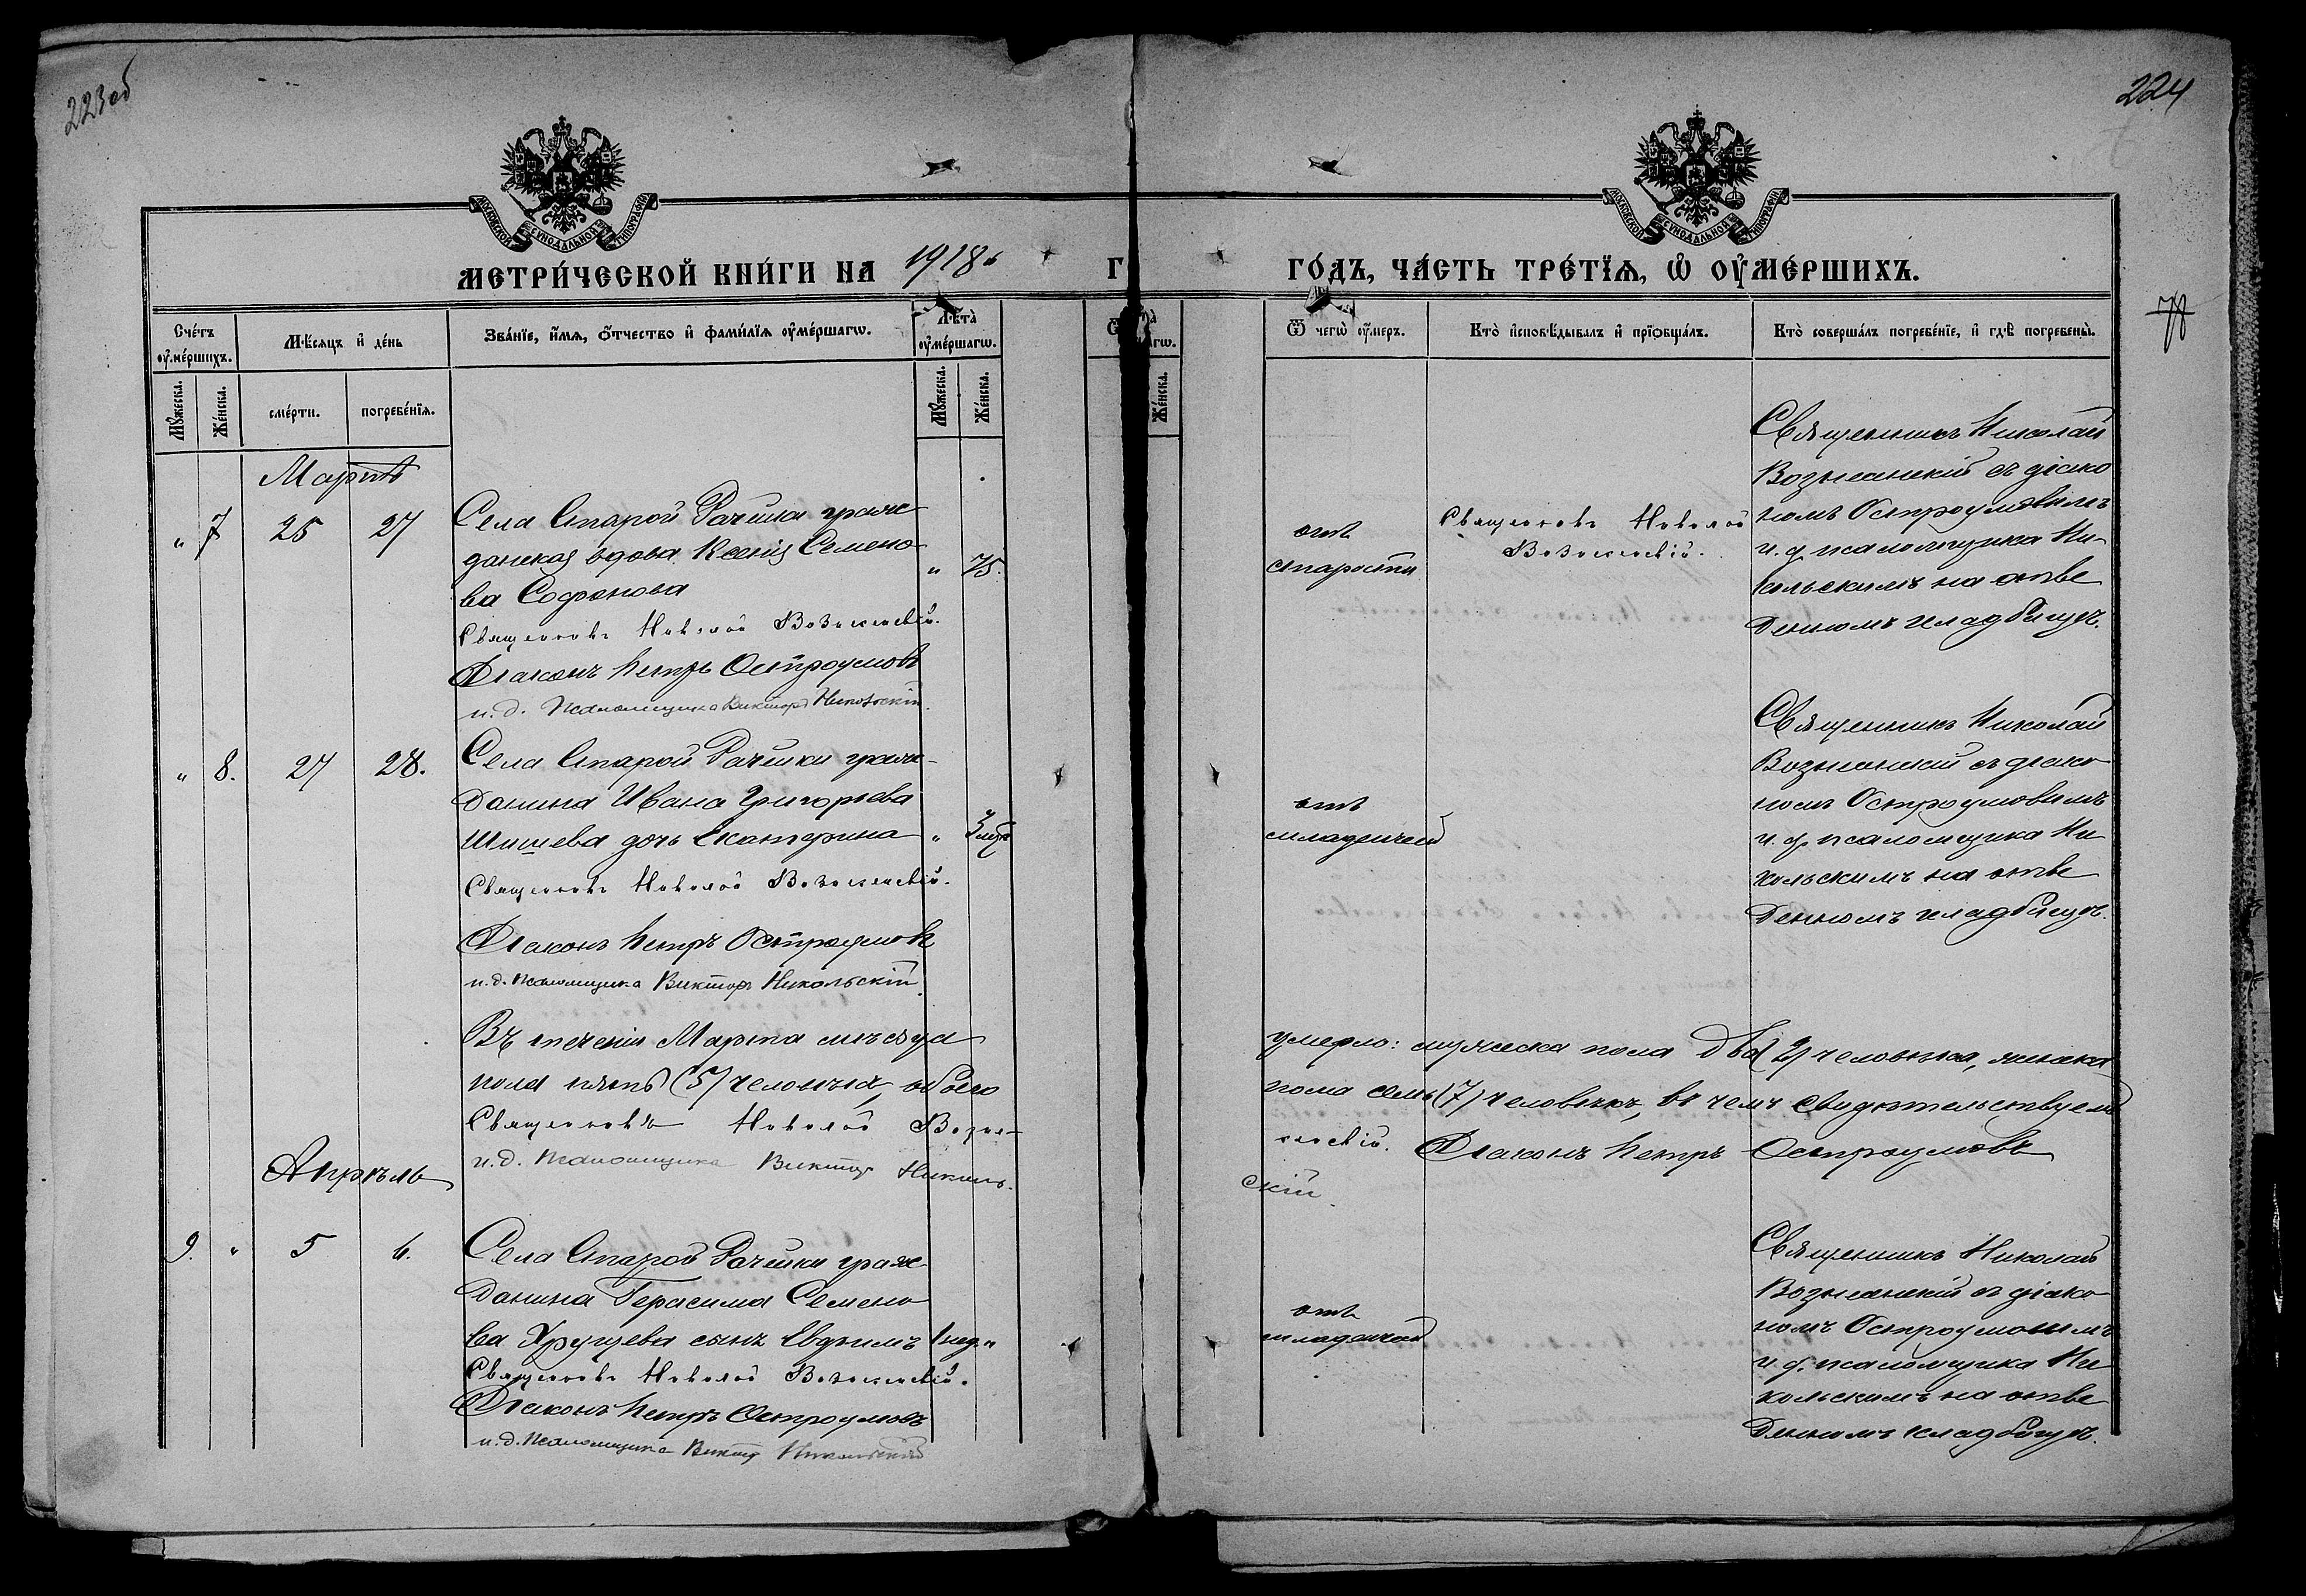 223об
224
МОСКОВСКОЙ СѴНОДАЛЬНОЙ ТИПОГРАФІИ
МОСКОВСКОЙ СѴНОДАЛЬНОЙ ТИПОГРАФІИ
МЕТРИ́ЧЕСКОЙ КНИ́ГИ НА 1918
Г
ГО́ДЪ, ЧА́СТЬ ТРЕ́ТІѦ, Ѡ҆ ОУ҆МЕ́РШИХЪ.
78
Сче́тъ оу҆ме́ршихъ.
Мѣ́сяцъ и҆ де́нь
Зва́нїе, и҆́мѧ, ѻ҆́тчество и҆ фами́лїѧ оу҆ме́ршагѡ.
Лѣ́та̀ оу҆ме́ршагѡ.
Ѿ чегѡ̀ оу҆́меръ.
Кто̀ и҆сповѣ́дывалъ и҆ прїѻбща́лъ.
Кто̀ соверша́лъ погребе́нїе, и҆ гдѣ̀ погребены̀.
Мꙋ́жеска.
Же́нска.
сме́рти.
погребе́нїѧ.
Мꙋ́жеска.
Же́нска.
Же́нска.
Мартъ
" 7 25 27
Села Старой Рачейки граж-
данская вдова Ксенія Семено-
ва Софонова
" 75.
Священникъ Николай Вознесенскій.
Діаконъ Петръ Остроумовъ
и. д. Псаломщика Викторъ Никольскій.
отъ
старости
Священникъ Николай
Вознесенскій.
Священникъ Николай
Вознесенскій съ діако
номъ Остроумовымъ
и. д. псаломщика Ни-
кольскимъ на отве
денномъ кладбищѣ.
" 8. 27 28.
Села Старой Рачейки граж-
данина Ивана Григорьева
Шишева дочь Екатерина " 3
Священникъ Николай Вознесенскій.
Діаконъ Петръ Остроумовъ
и. д. Псаломщика Викторъ Никольскій
отъ
младенческой
Священникъ Николай
Вознесенскій съ діако-
номъ Остроумовымъ
и. д. псаломщика Ни
кольскимъ на отве
денномъ кладбищѣ.
Въ теченіи Марта мѣсяца
умерло: мужеска пола два (2) человѣка, женска
пола пять (5) человѣкъ, обоего
пола семь (7) человѣкъ, въ чемъ свидѣтельствуемъ
Священникъ Николай Возне-
сенскій. Діаконъ Петръ Остроумовъ
и. д. Псаломщика Викторъ Николь-
скій.
Апрѣль
9. " 5 6.
Села Старой Рачейки граж-
данина Герасима Семено
ва Хрущева сынъ Евдокимъ 1 нед. "
Священникъ Николай Вознесенскій.
Діаконъ Петръ Остроумовъ
и. д. Псаломщика Викторъ Никольскій
отъ
младенческой
Священникъ Николай
Вознесенскій съ діако-
номъ Остроумовымъ
и. д. псаломщика Ни
кольскимъ на отве
денномъ кладбищѣ.